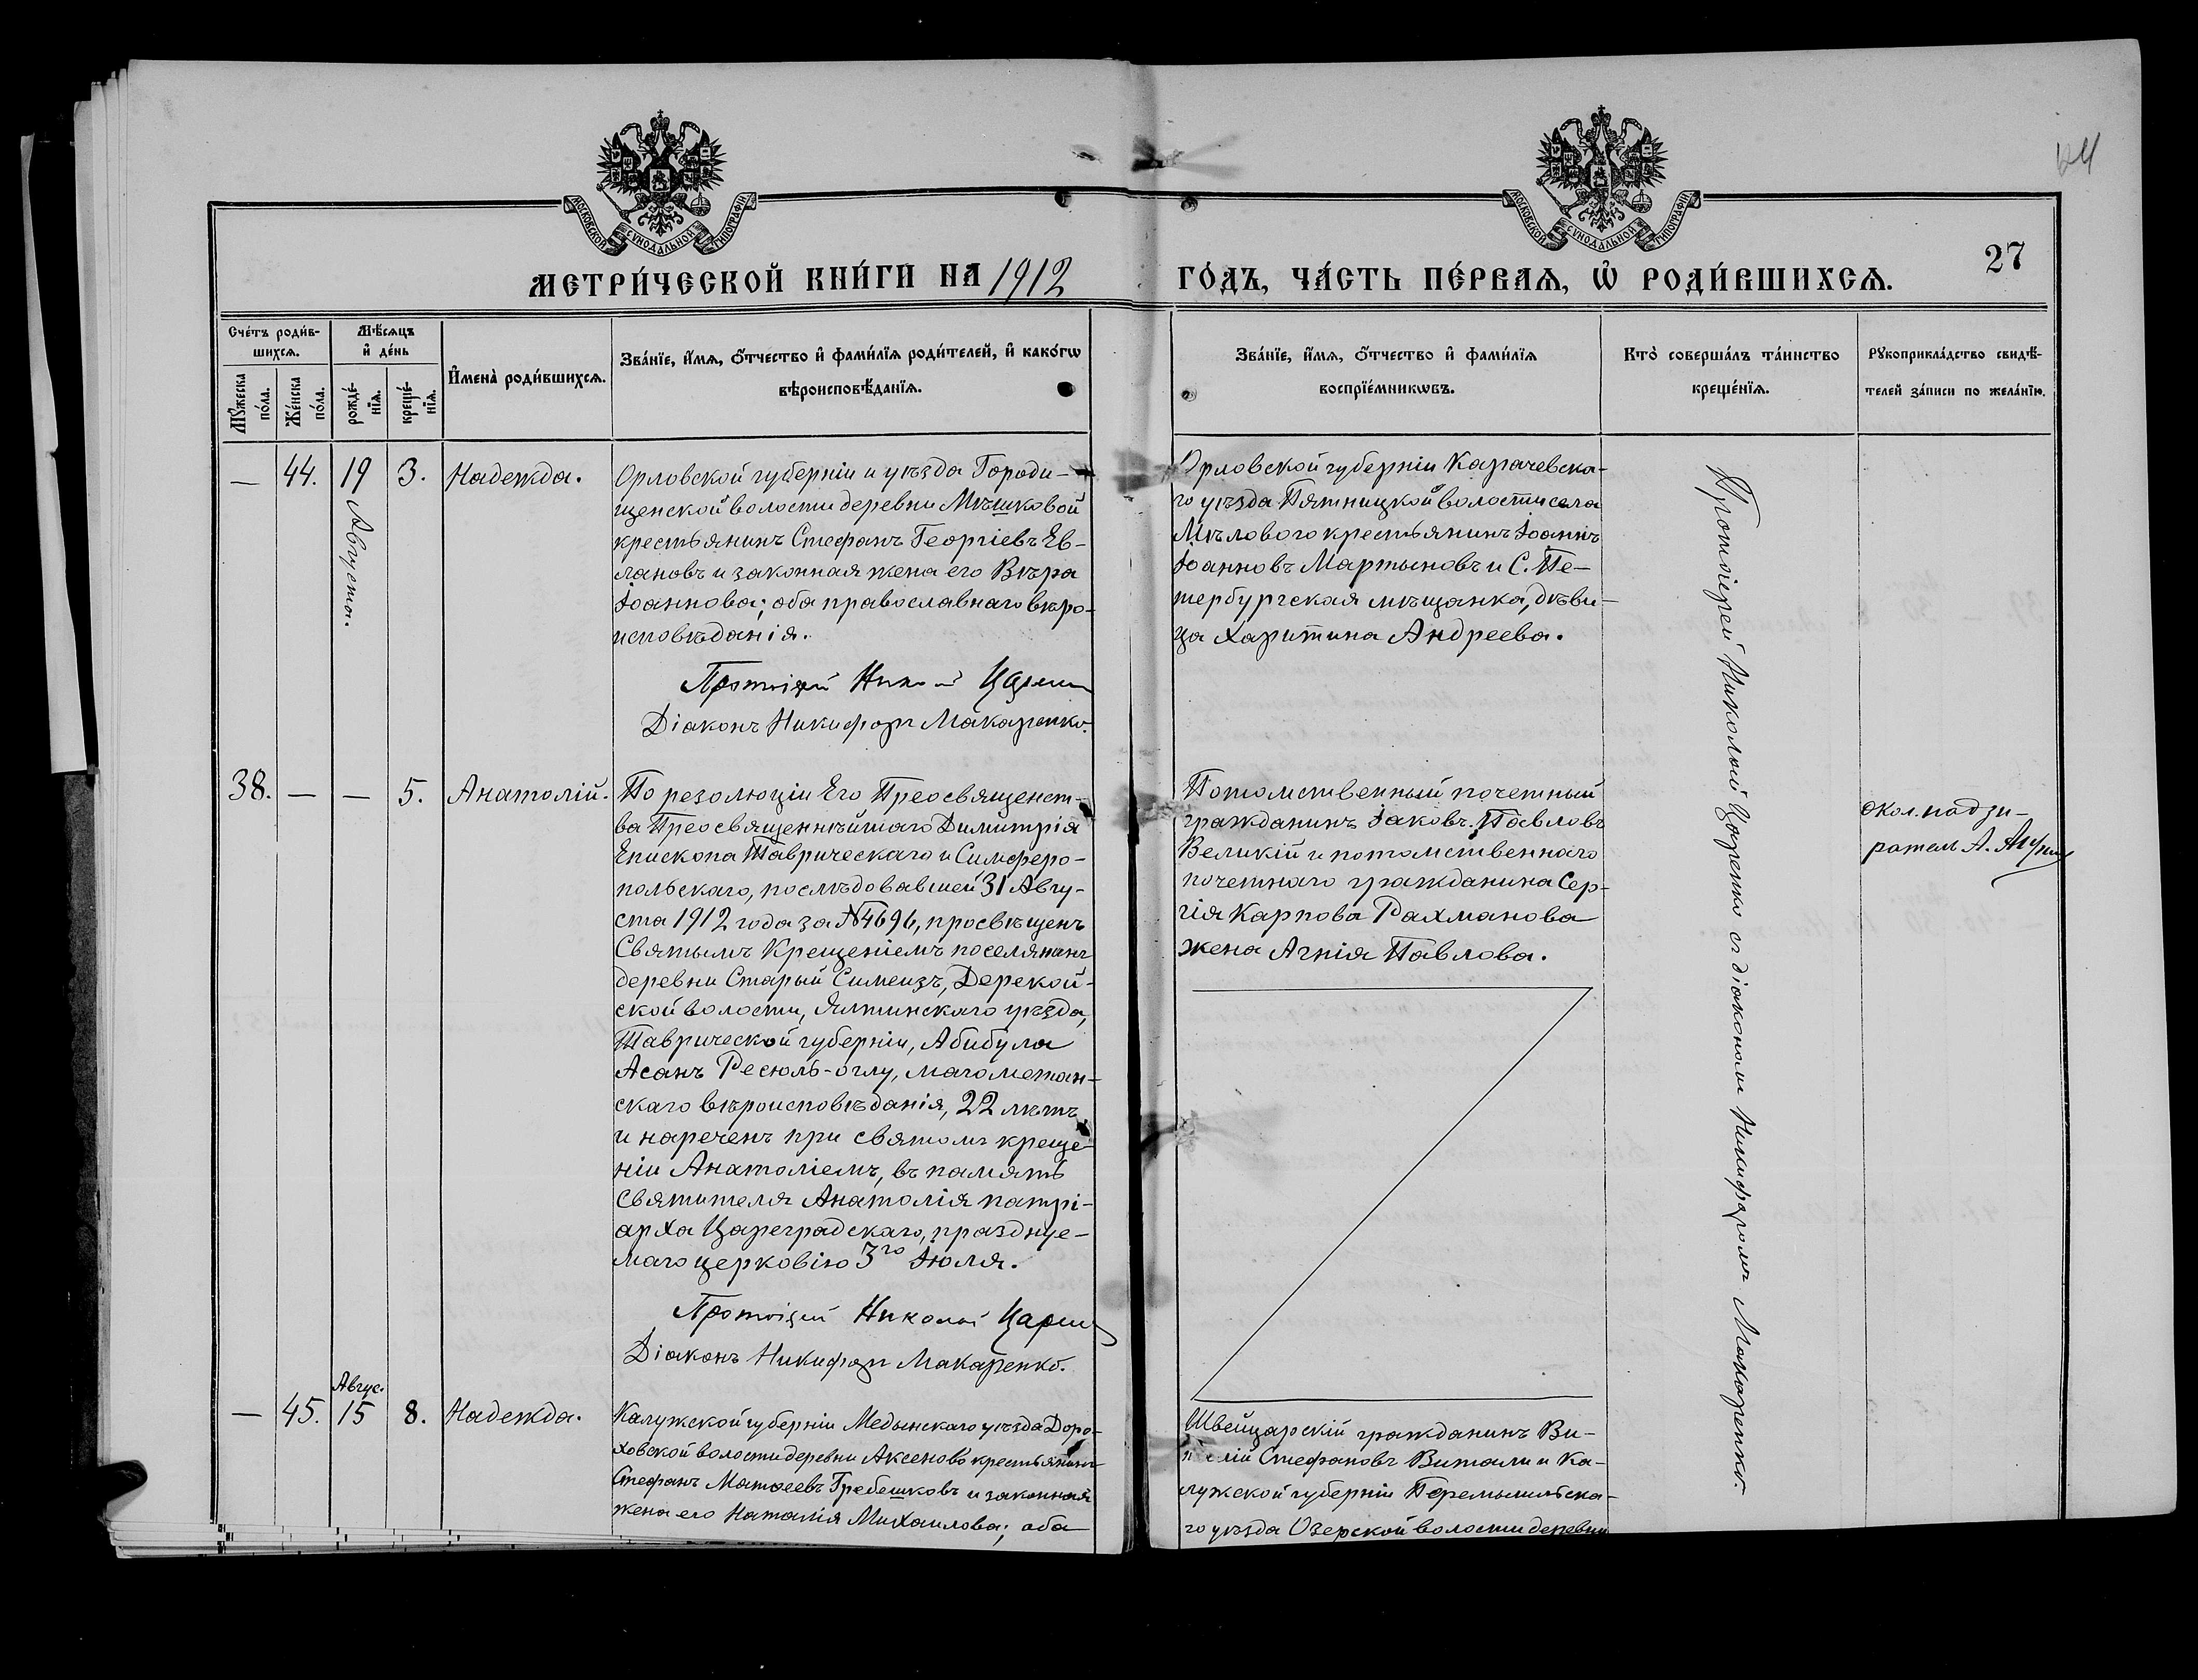 МОСКОВСКОЙ СѴНОДАЛЬНОЙ ТИПОГРАФІИ
МОСКОВСКОЙ СѴНОДАЛЬНОЙ ТИПОГРАФІИ
27
МЕТРИ́ЧЕСКОЙ КНИ́ГИ НА 1912
ГО́ДЪ, ЧА́СТЬ ПЕ́РВАѦ, Ѡ҆ РОДИ́ВШИХСѦ.
Сче́тъ роди́в-
шихсѧ.
Мѣ́сѧцъ
и҆ де́нь
Мꙋ́жеска
по́ла.
Же́нска
по́ла.
рожде́-
нїѧ.
креще́-
нїѧ.
И҆мена̀ роди́вшихсѧ.
Зва́нїе, и҆́мѧ, ѻ҆́тчество и҆ фами́лїѧ роди́телей, и҆ како́гѡ
вѣроисповѣ́данїѧ.
Зва́нїе, и҆́мѧ, ѻ҆́тчество и҆ фами́лїѧ
воспрїе́мникѡвъ.
Кто̀ соверша́лъ та́инство
креще́нїѧ.
Рꙋкоприкла́дство свидѣ́-
телей за́писи по жела́нїю.
— 44. 19 Августа. 3. Надежда.
Орловской губерніи и уѣзда Городи-
щенской волости деревни Мѣшковой
крестьянинъ Стефанъ Георгіевъ Ев-
лановъ и законная жена его Вѣра
Іоаннова; оба православнаго вѣро-
исповѣданія.
Протоіерей Николай
Діаконъ Никифоръ Макаренко.
Орловской губерніи Карачевска-
го уѣзда Пятницкой волости села
Мѣлового крестьянинъ Іоаннъ
Іоанновъ Мартыновъ и С. Пе-
тербургская мѣщанка, дѣви-
ца Харитина Андреева.
Протоіерей Николай Царенко съ діакономъ Никифоромъ Макаренко.
38. — — 5. Анатолій.
По резолюціи Его Преосвященст-
ва Преосвященнѣйшаго Димитрія
Епископа Таврическаго и Симферо-
польскаго, послѣдовавшей 31 Авгу-
ста 1912 года за №4696, просвѣщенъ
Святымъ Крещеніемъ поселянинъ
деревни Старый Симеизъ, Дерекой-
ской волости, Ялтинскаго уѣзда,
Таврической губерніи, Абибула
Асанъ Ресюль-оглу, магометан-
скаго вѣроисповѣданія, 22 лѣтъ
и нареченъ при святомъ креще-
ніи Анатоліемъ, въ память
Святителя Анатолія патрі-
арха Цареградскаго, празднуе-
маго церковію 3го Іюля.
Протоіерей Николай
Діаконъ Никифоръ Макаренко.
Потомственный почетный
гражданинъ Іаковъ Павловъ
Великій и потомственнаго
почетнаго гражданина Сер-
гія Карпова Рахманова
жена Агнія Павлова.
окол. надзи-
ратель А.
— 45. Авгус. 15 8. Надежда.
Калужской губерніи Медынскаго уѣзда Доро-
ховской волости деревни Аксеново крестьянинъ
Стефанъ Матѳеевъ Гребешковъ и законная
жена его Наталія Михаилова; оба
Швейцарскій гражданинъ Ви-
Стефановъ Витали и Ка-
лужской губерніи Перемышльска-
го уѣзда Озерской волости деревни